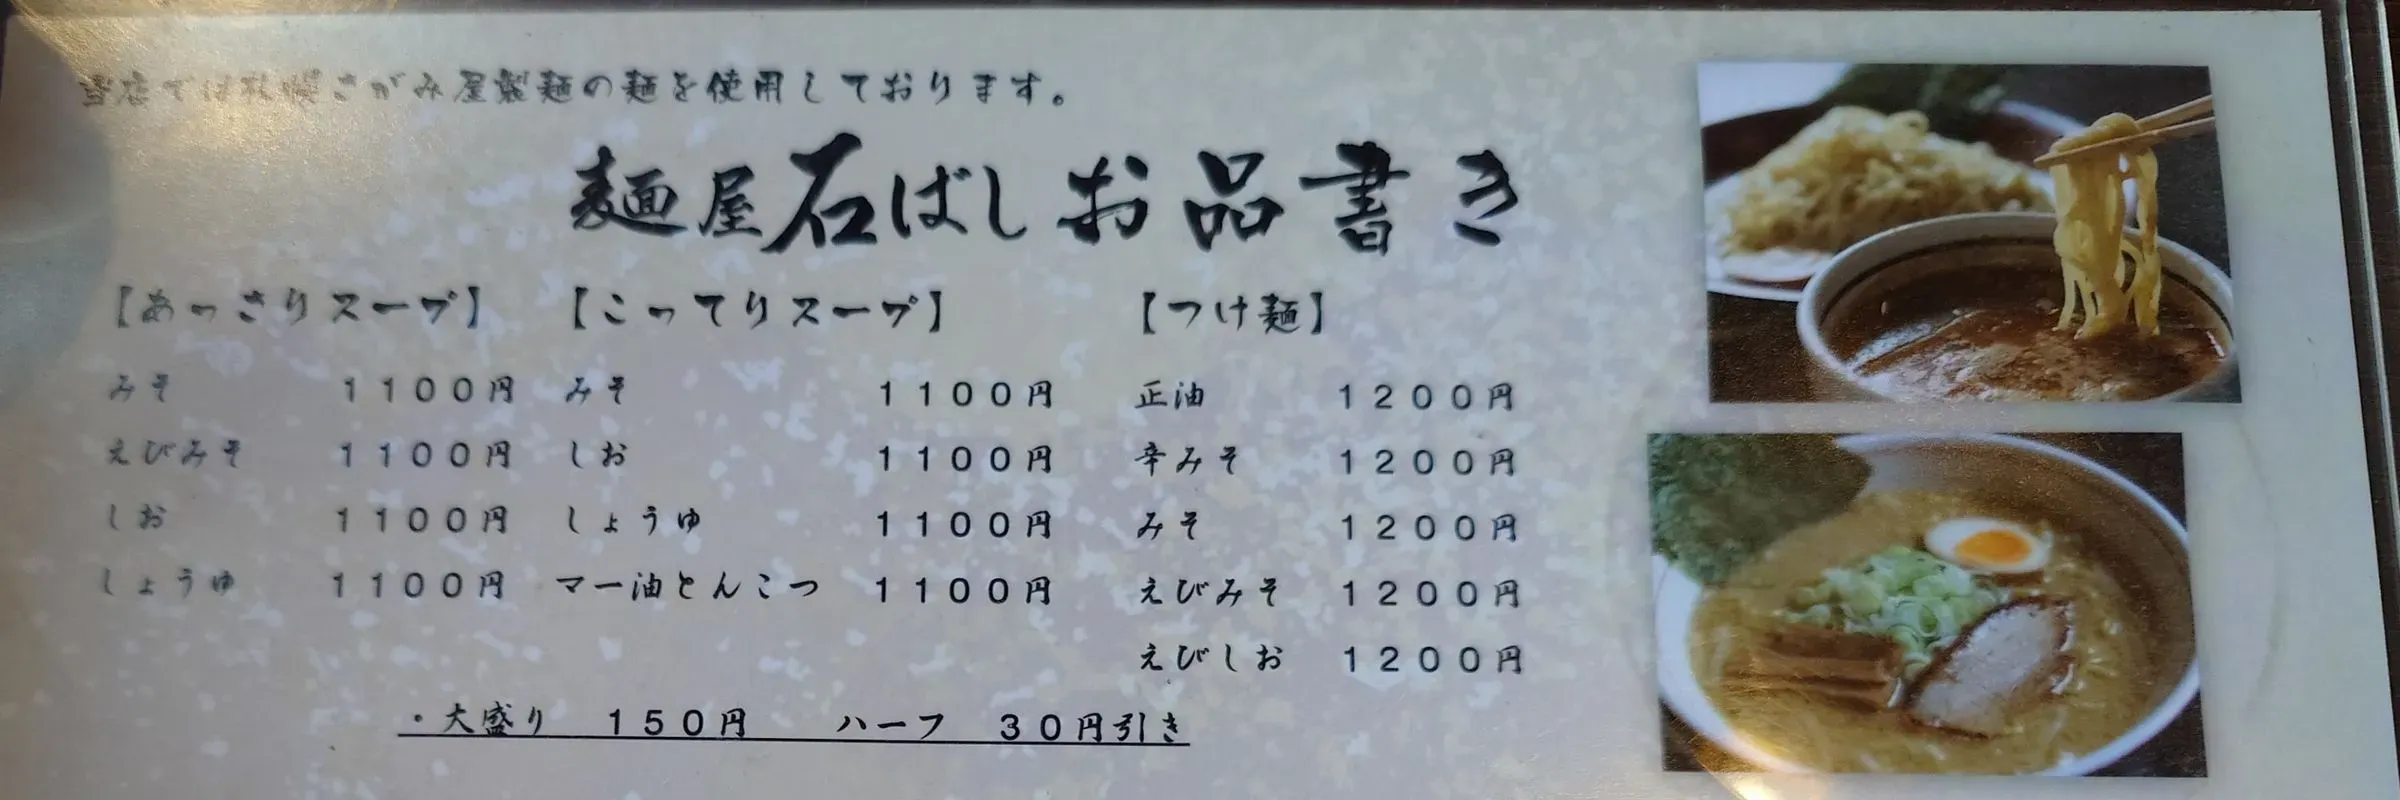 当店では札幌さがみ屋製麺の麺を使用しております。
麺屋石ばしお品書き
【あっさりスープ】 【こってりスープ】 【つけ麺】
みそ １１００円 みそ １１００円 正油 １２００円
えびみそ １１００円 しお １１００円 辛みそ １２００円
しお １１００円 しょうゆ １１００円 みそ １２００円
しょうゆ １１００円 マー油とんこつ １１００円 えびみそ １２００円
えびしお １２００円
・大盛り １５０円 ハーフ ３０円引き